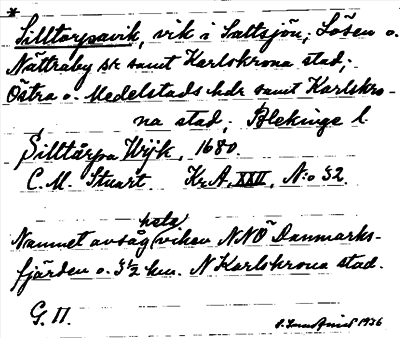 *
Silltorpavik, vik i Saltsjön; Lösen o.
Nättraby sr samt Karlskrona stad;
Östra o. Medelstads hdr samt Karlskro-
na stad; Blekinge l.
Silltårpa Wijk, 1680.
C. M. Stuart Kr. A. XXII, A:o 32.
hela
Namnet avsåg viken NNÖ Danmarks-
fjärden o. 3½ km. N Karlskrona stad.
G. 11.
1936